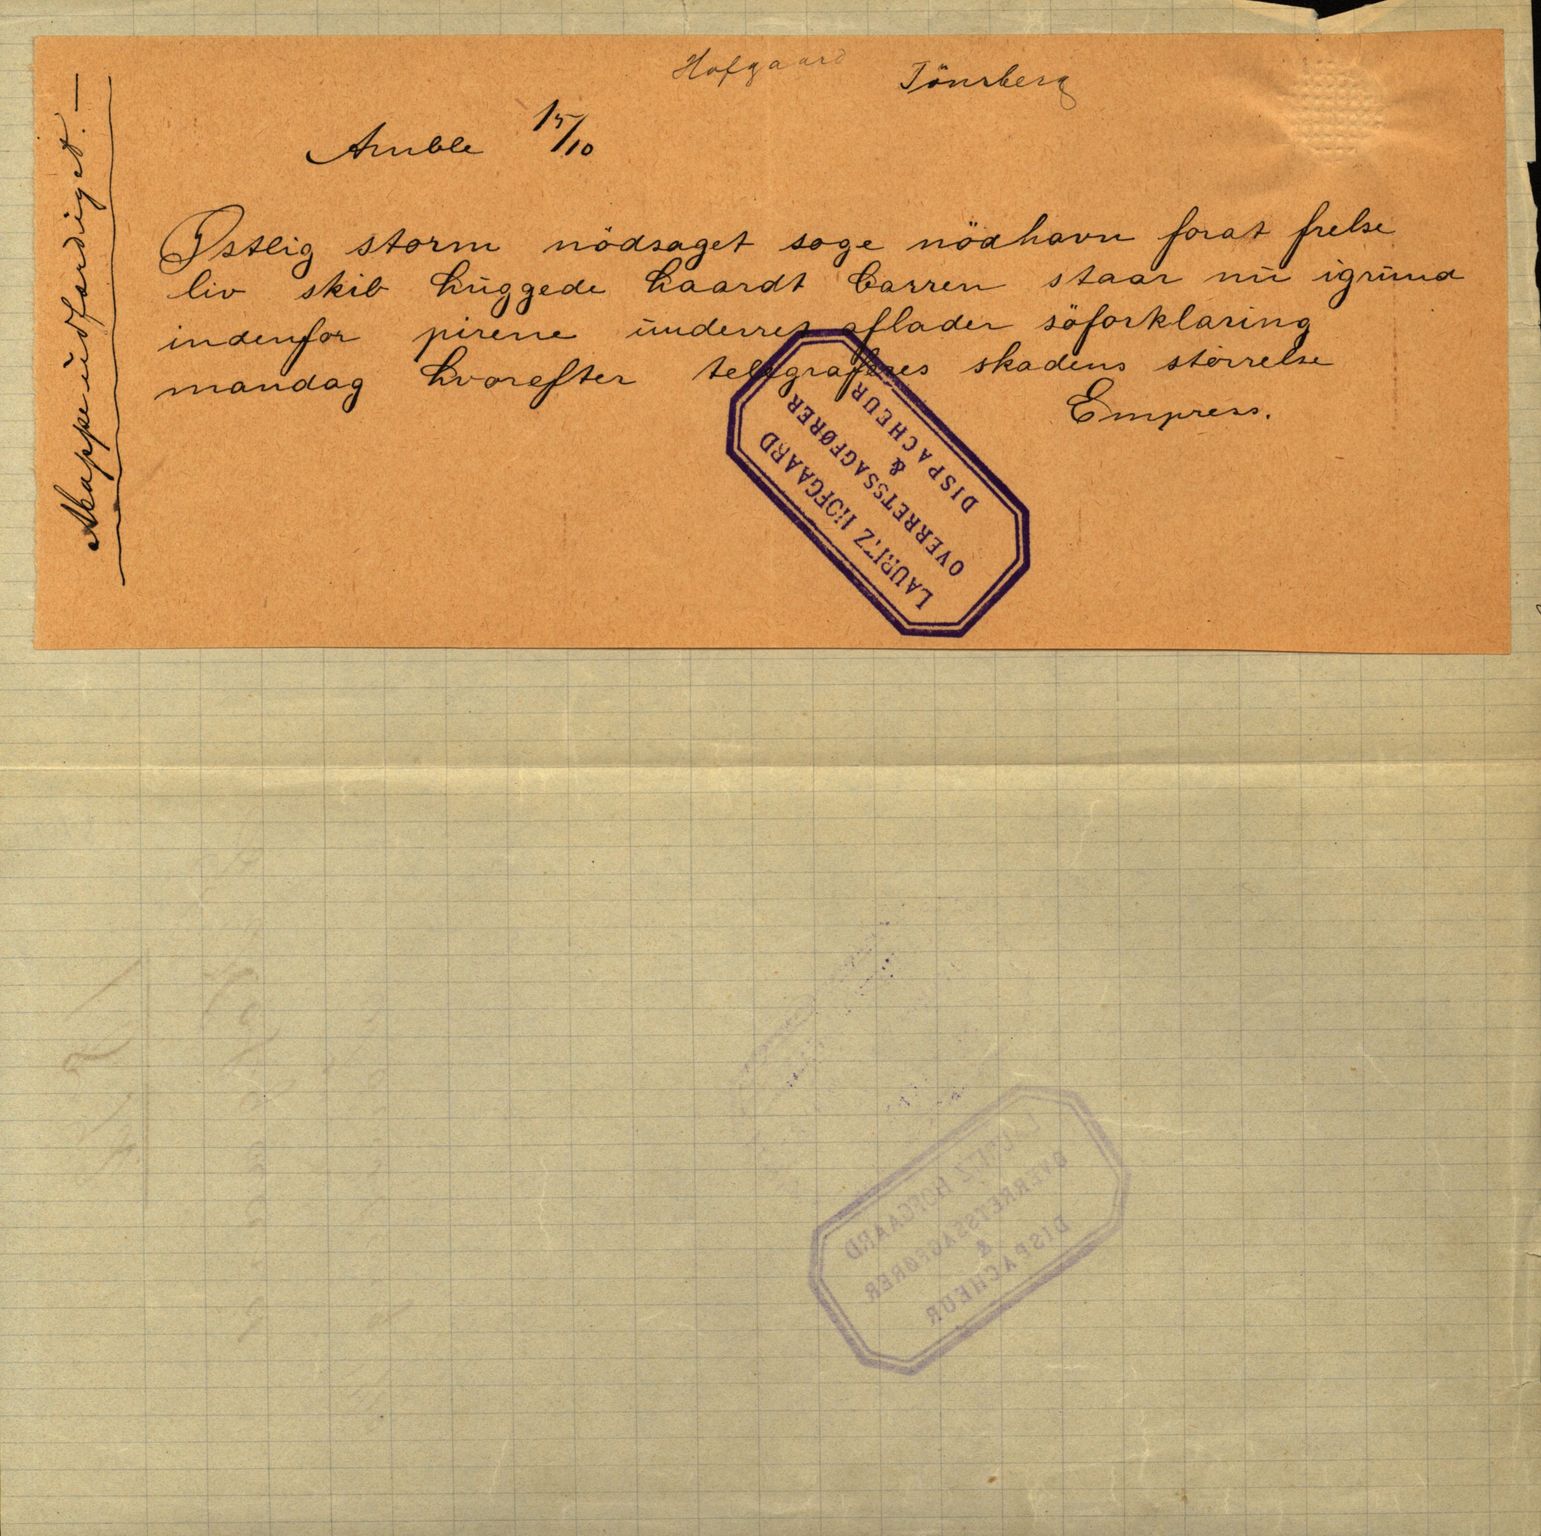 Hofgaard Tönsberg
Amble 15/10
Østlig storm nödsaget soge nödhavn forat frelse
liv skib huggede haardt barren staar nu igrund
indenfor pirene underret aflader söforklaring
mandag hvorefter telegraferes skadens störrelse
Empress.
Mappe udfærdiget. —
LAURITZ HOFGAARD
OVERRETSSAGFØRER
&
DISPACHEUR
LAURITZ HOFGAARD
OVERRETSSAGFØRER
&
DISPACHEUR